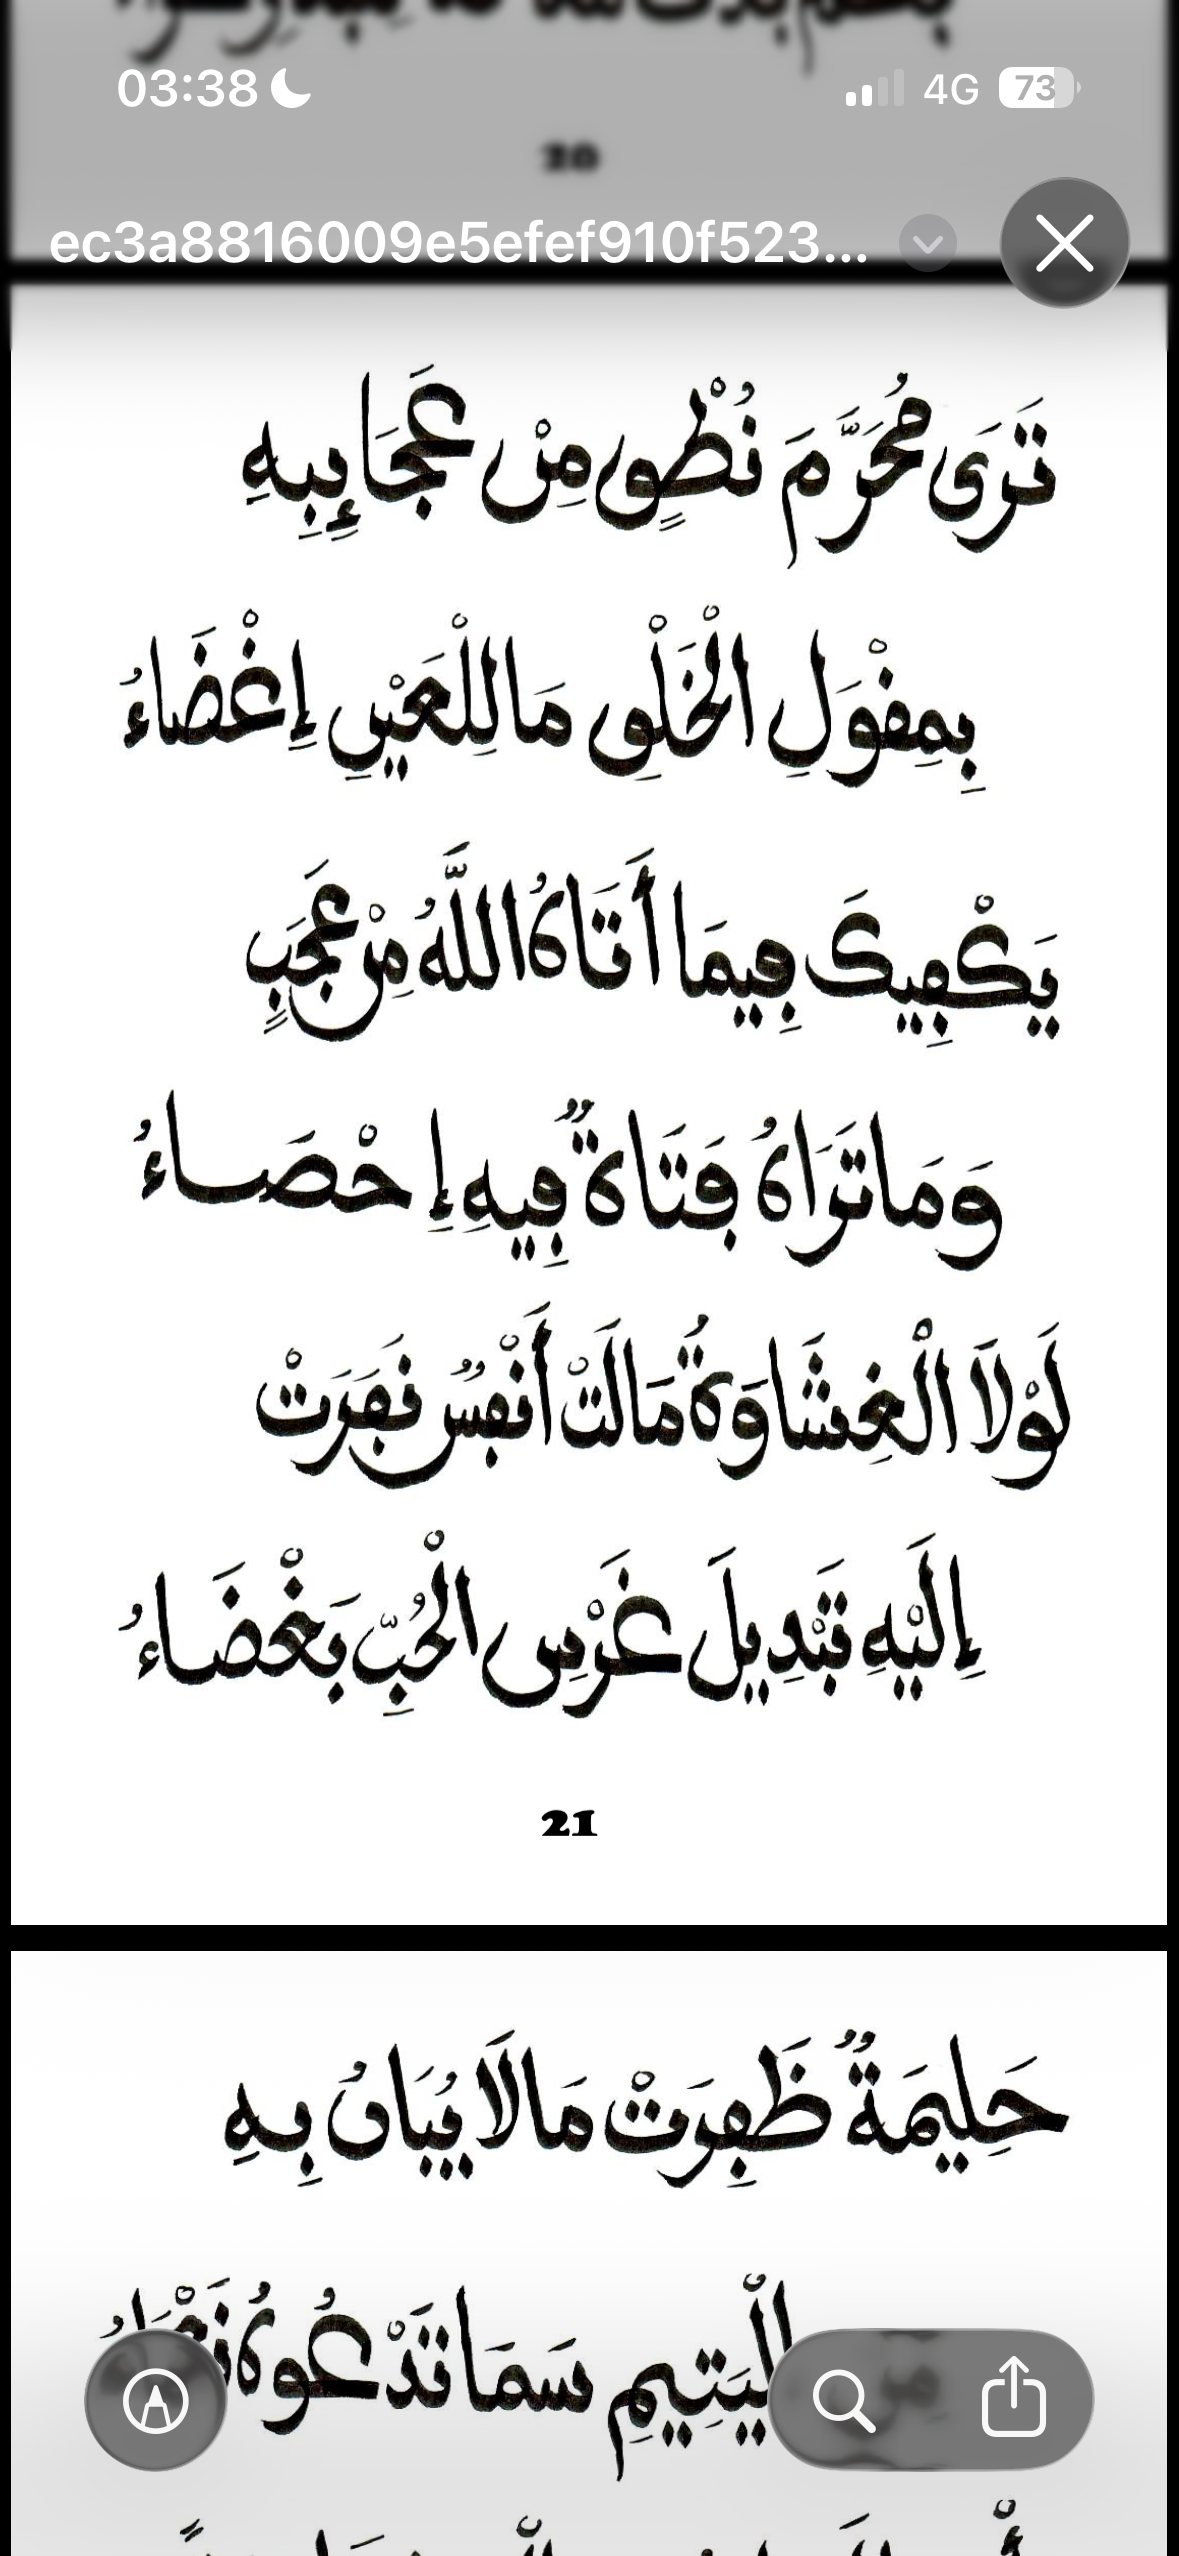 03:38
4G 73
20
ec3a8816009e5efef910f523...
تَرَى مُحَرَّمَ نُطْقٍ مِنْ عَجَائِبِهِ
بِمِقْوَلِ الْخَلْقِ مَا لِلْعَيْنِ إِغْضَاءُ
يَكْفِيكَ فِيمَا أَتَاهُ اللَّهُ مِنْ عَجَبٍ
وَمَا تَرَاهُ فَتَاةٌ فِيهِ إِحْصَاءُ
لَوْلَا الْغِشَاوَةُ مَالَتْ أَنْفُسٌ نَفَرَتْ
إِلَيْهِ تَبْدِيلَ غَرْسِ الْحُبِّ بَغْضَاءُ
21
حَلِيمَةٌ ظَفِرَتْ مَا لَا يُبَانُ بِهِ
الْيَتِيمِ سَمَا تَدْعُوهُ